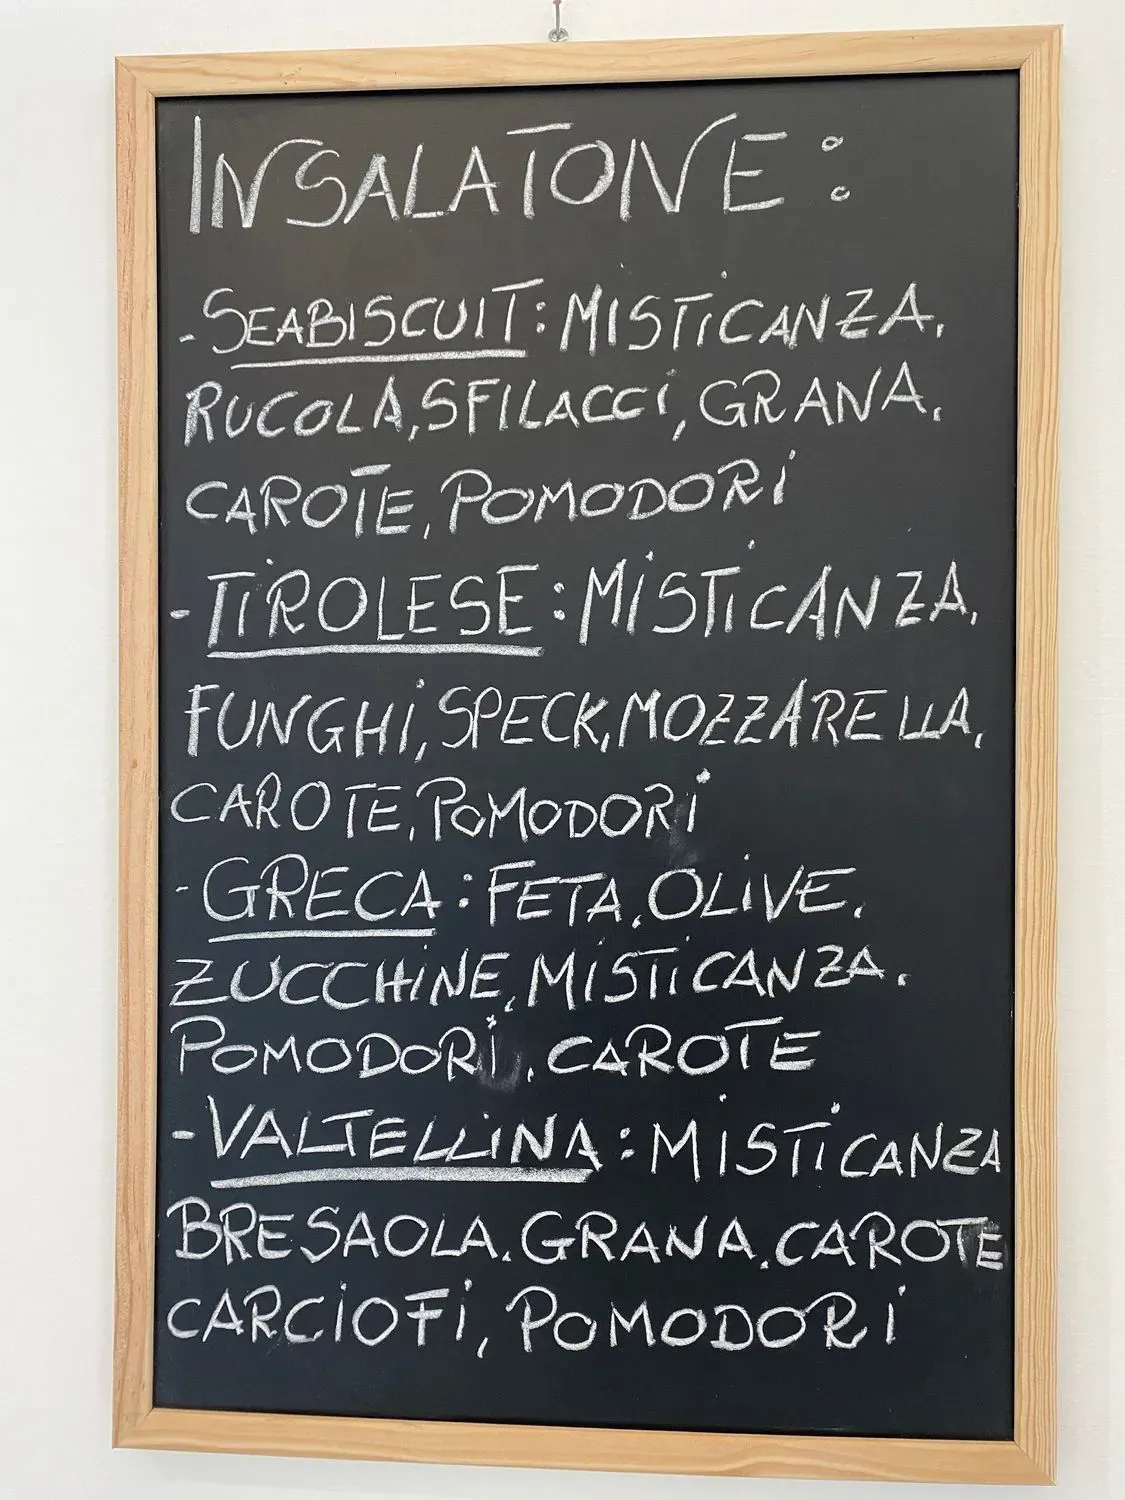 INSALATONE:
-SEABISCUIT: MISTICANZA,
RUCOLA, SFILACCI, GRANA,
CAROTE, POMODORI
-TIROLESE: MISTICANZA,
FUNGHI, SPECK, MOZZARELLA,
CAROTE, POMODORI
-GRECA: FETA, OLIVE,
ZUCCHINE, MISTICANZA,
POMODORI, CAROTE
-VALTELLINA: MISTICANZA
BRESAOLA, GRANA, CAROTE
CARCIOFI, POMODORI